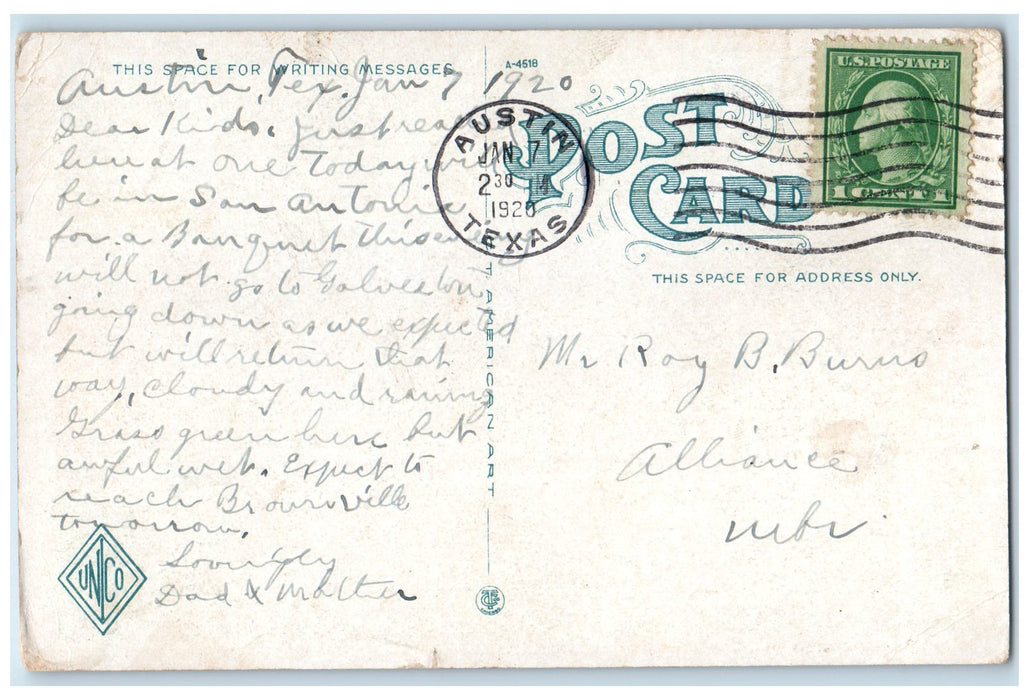 THIS SPACE FOR WRITING MESSAGES
A-4518
Austin, Tex. Jan 7 1920
Dear Kids. Just rea
here at one Today
be in San Antonio
for a Banquet this
will not go to Galveston
going down as we expected
but will return that
way, cloudy and raining
Grass green here but
awful wet. Expect to
reach Brownville
tomorrow.
Lovingly
Dad & Mother
UNCO
AUSTIN
JAN 7
2 30
1920
TEXAS
POST
CARD
U.S. POSTAGE
1 CENT 1
THIS SPACE FOR ADDRESS ONLY.
Mr Roy B. Burns
Alliance
Nbr.
AMERICAN ART